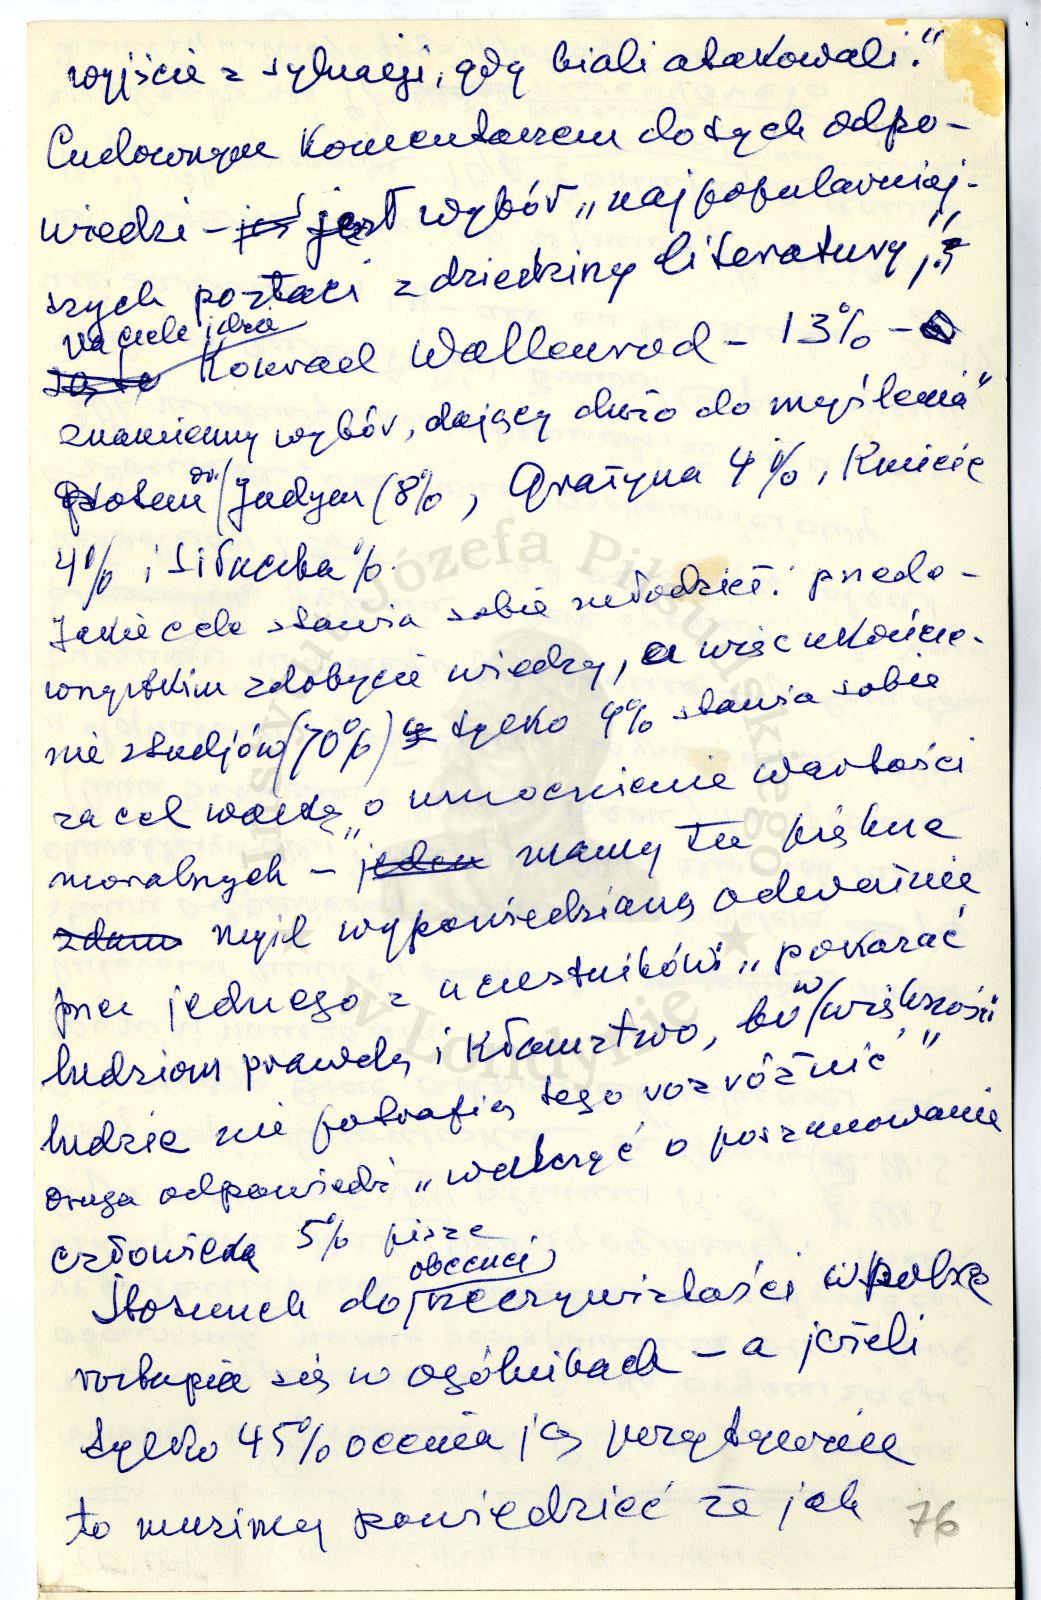 wyjście z sytuacji, gdy biali atakowali."
Cudownym komentarzem do tych odpo-
wiedzi – jest wybór „najpopularniej-
szych postaci z dziedziny literatury,"
na czele idzie
Konrad Wallenrod – 13% –
znamienny wybór, dający dużo do myślenia"
potem dr. Judym (8%, Grażyna 4%, Kmicic
4% i Siłaczka %.
Jakie cele stawia sobie młodzież: przede-
wszystkim zdobycie wiedzy, a więc ukończe-
nie studjów (70%) tylko 4% stawia sobie
za cel walkę o umocnienie wartości
moralnych – „jeden mamy tu piękne
zdanie myśl wypowiedzianą odważnie
przez jednego z uczestników: „pokazać
ludziom prawdę i kłamstwo, bo w większości
ludzie nie potrafią tego rozróżnić"
druga odpowiedź „walczyć o poszanowanie
człowieka 5% pisze
obecnej
Stosunek do rzeczywistości w Polsce
roztapia się w ogólnikach – a jeżeli
tylko 45% ocenia ją pozytywnie
to musimy powiedzieć że jak
76
Instytut Józefa Piłsudskiego
w Londynie